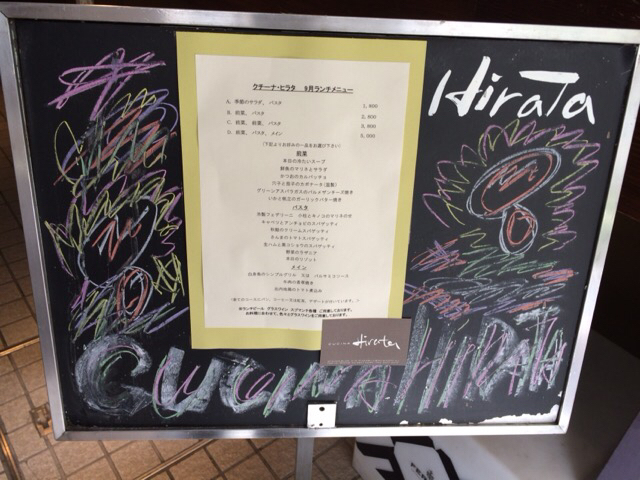 HiraTa
クチーナ・ヒラタ 9月ランチメニュー
A. 季節のサラダ、パスタ 1,800
B. 前菜、パスタ 2,600
C. 前菜、前菜、パスタ 3,900
D. 前菜、パスタ、メイン 5,000
(下記よりお好みの一品をお選び下さい)
前菜
本日の冷たいスープ
鮮魚のマリネとサラダ
かつおのカルパッチョ
穴子と茄子のカポナータ
グリーンアスパラガスのパルメザンチーズ焼き
いわと帆立のガーリックバター焼き
パスタ
冷製フェデリーニ
キャベツとアンチョビのスパゲッティ
秋鮭のクリームスパゲッティ
さんまのトマトスパゲッティ
生ハムと黒コショウのスパゲッティ
野菜のラザニア
本日のリゾット
メイン
白身魚のシンプルグリル 又は
牛肉の香草焼き
仔内地鶏のトマト煮込み
CUCINA Hirata
CUCINA HIRATA